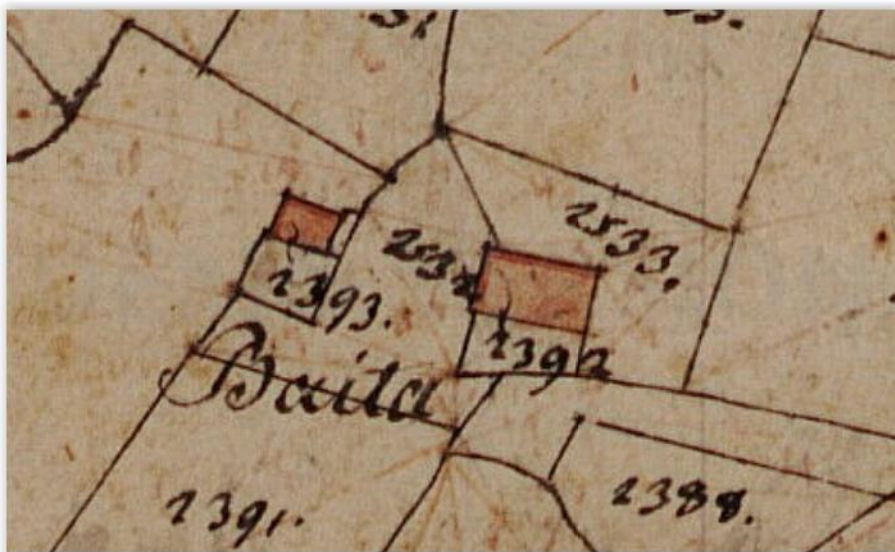 2533.
2532
2393.
2392
Baita
2391.
2388.